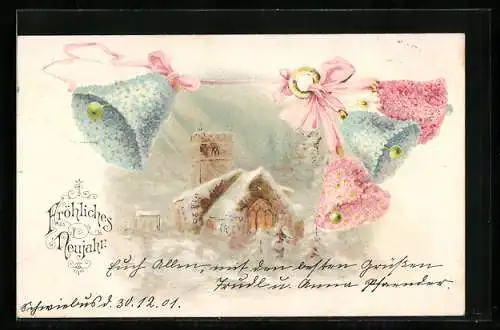 Fröhliches
Neujahr.
Euch Allen, mit den besten Grüßen
Trudl u. Anna Pfaender.
Schwiebus d. 30.12.01.